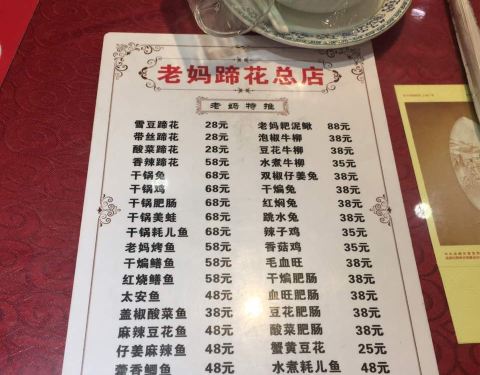 老妈蹄花总店
老妈特推
雪豆蹄花 28元 老妈粑泥鳅 88元
带丝蹄花 28元 泡椒牛柳 38元
酸菜蹄花 28元 豆花牛柳 38元
香辣蹄花 58元 水煮牛柳 35元
干锅兔 68元 双椒仔姜兔 38元
干锅鸡 68元 干煸兔 38元
干锅肥肠 68元 红焖兔 38元
干锅美蛙 68元 跳水兔 38元
干锅耗儿鱼 68元 辣子鸡 35元
老妈烤鱼 58元 香菇鸡 35元
干煸鳝鱼 58元 毛血旺 38元
红烧鳝鱼 58元 干煸肥肠 38元
太安鱼 48元 血旺肥肠 38元
盖椒酸菜鱼 38元 豆花肥肠 38元
麻辣豆花鱼 48元 酸菜肥肠 38元
仔姜麻辣鱼 48元 蟹黄豆花 25元
藿香鲫鱼 48元 水煮耗儿鱼 48元